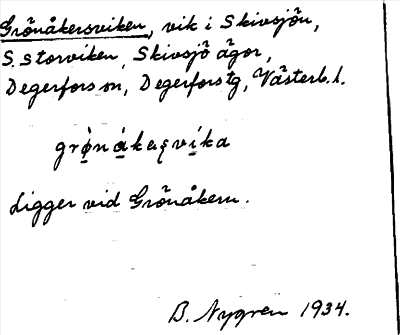 Grönåkersviken, vik i Skivsjön,
S. Storviken, Skivsjö ägor,
Degerfors sn, Degerfors tg, Västerb. l.
grø̀nákaṣvìka
Ligger vid Grönåkern.
B. Nygren 1934.